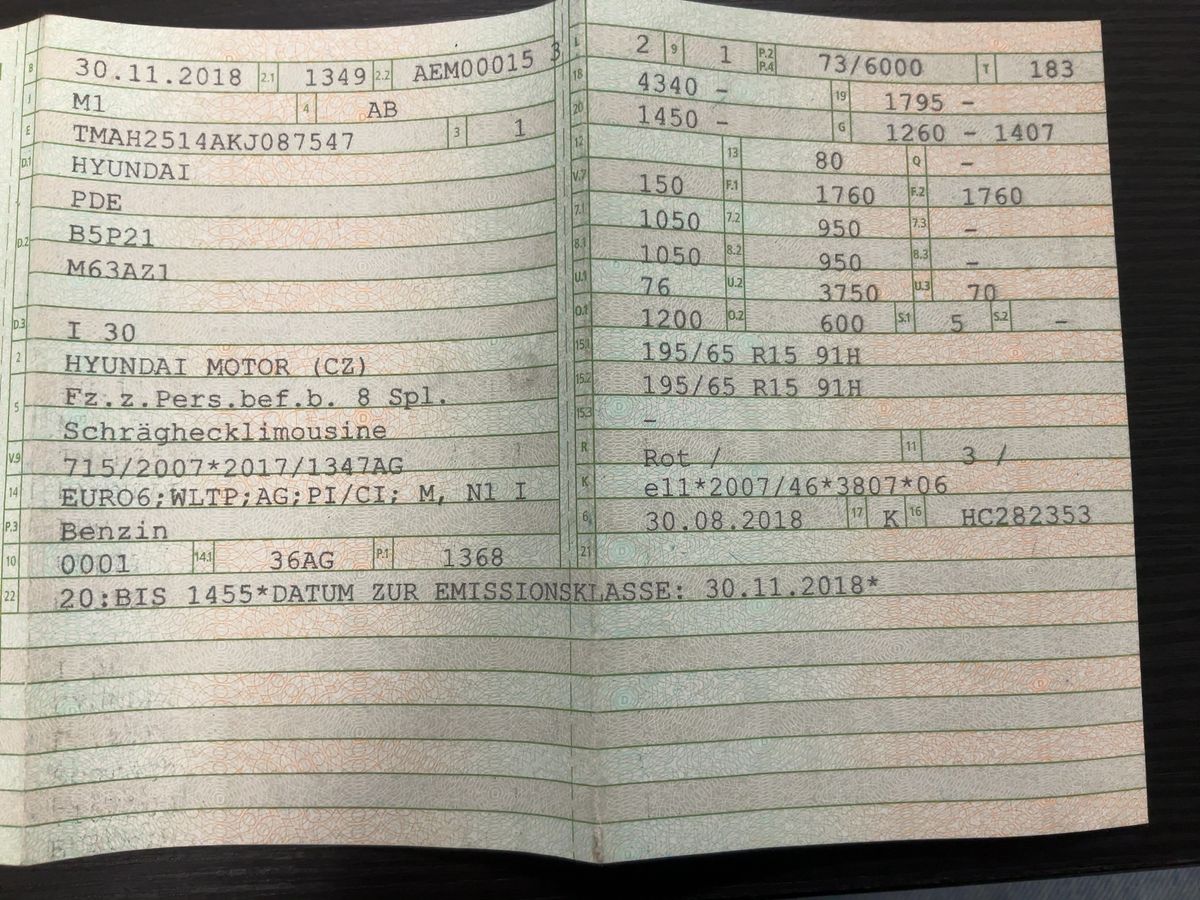 B 30.11.2018 2.1 1349 2.2 AEM00015 3
J M1 4 AB
E TMAH2514AKJ087547 3 1
D.1 HYUNDAI
PDE
D.2 B5P21
M63AZ1
D.3 I 30
2 HYUNDAI MOTOR (CZ)
5 Fz.z.Pers.bef.b. 8 Spl.
Schräghecklimousine
V.9 715/2007*2017/1347AG
14 EURO6;WLTP;AG;PI/CI; M, N1 I
P.3 Benzin
10 0001 14.1 36AG P.1 1368
22 20:BIS 1455*DATUM ZUR EMISSIONSKLASSE: 30.11.2018*
L 2 9 1 P.2 P.4 73/6000 T 183
18 4340 - 19 1795 -
20 1450 - G 1260 - 1407
12 13 80 Q -
V.7 150 F.1 1760 F.2 1760
7.1 1050 7.2 950 7.3 -
8.1 1050 8.2 950 8.3 -
U.1 76 U.2 3750 U.3 70
O.1 1200 O.2 600 S.1 5 S.2 -
15.1 195/65 R15 91H
15.2 195/65 R15 91H
15.3 -
R Rot / 11 3 /
K e11*2007/46*3807*06
6 30.08.2018 17 K 16 HC282353
21